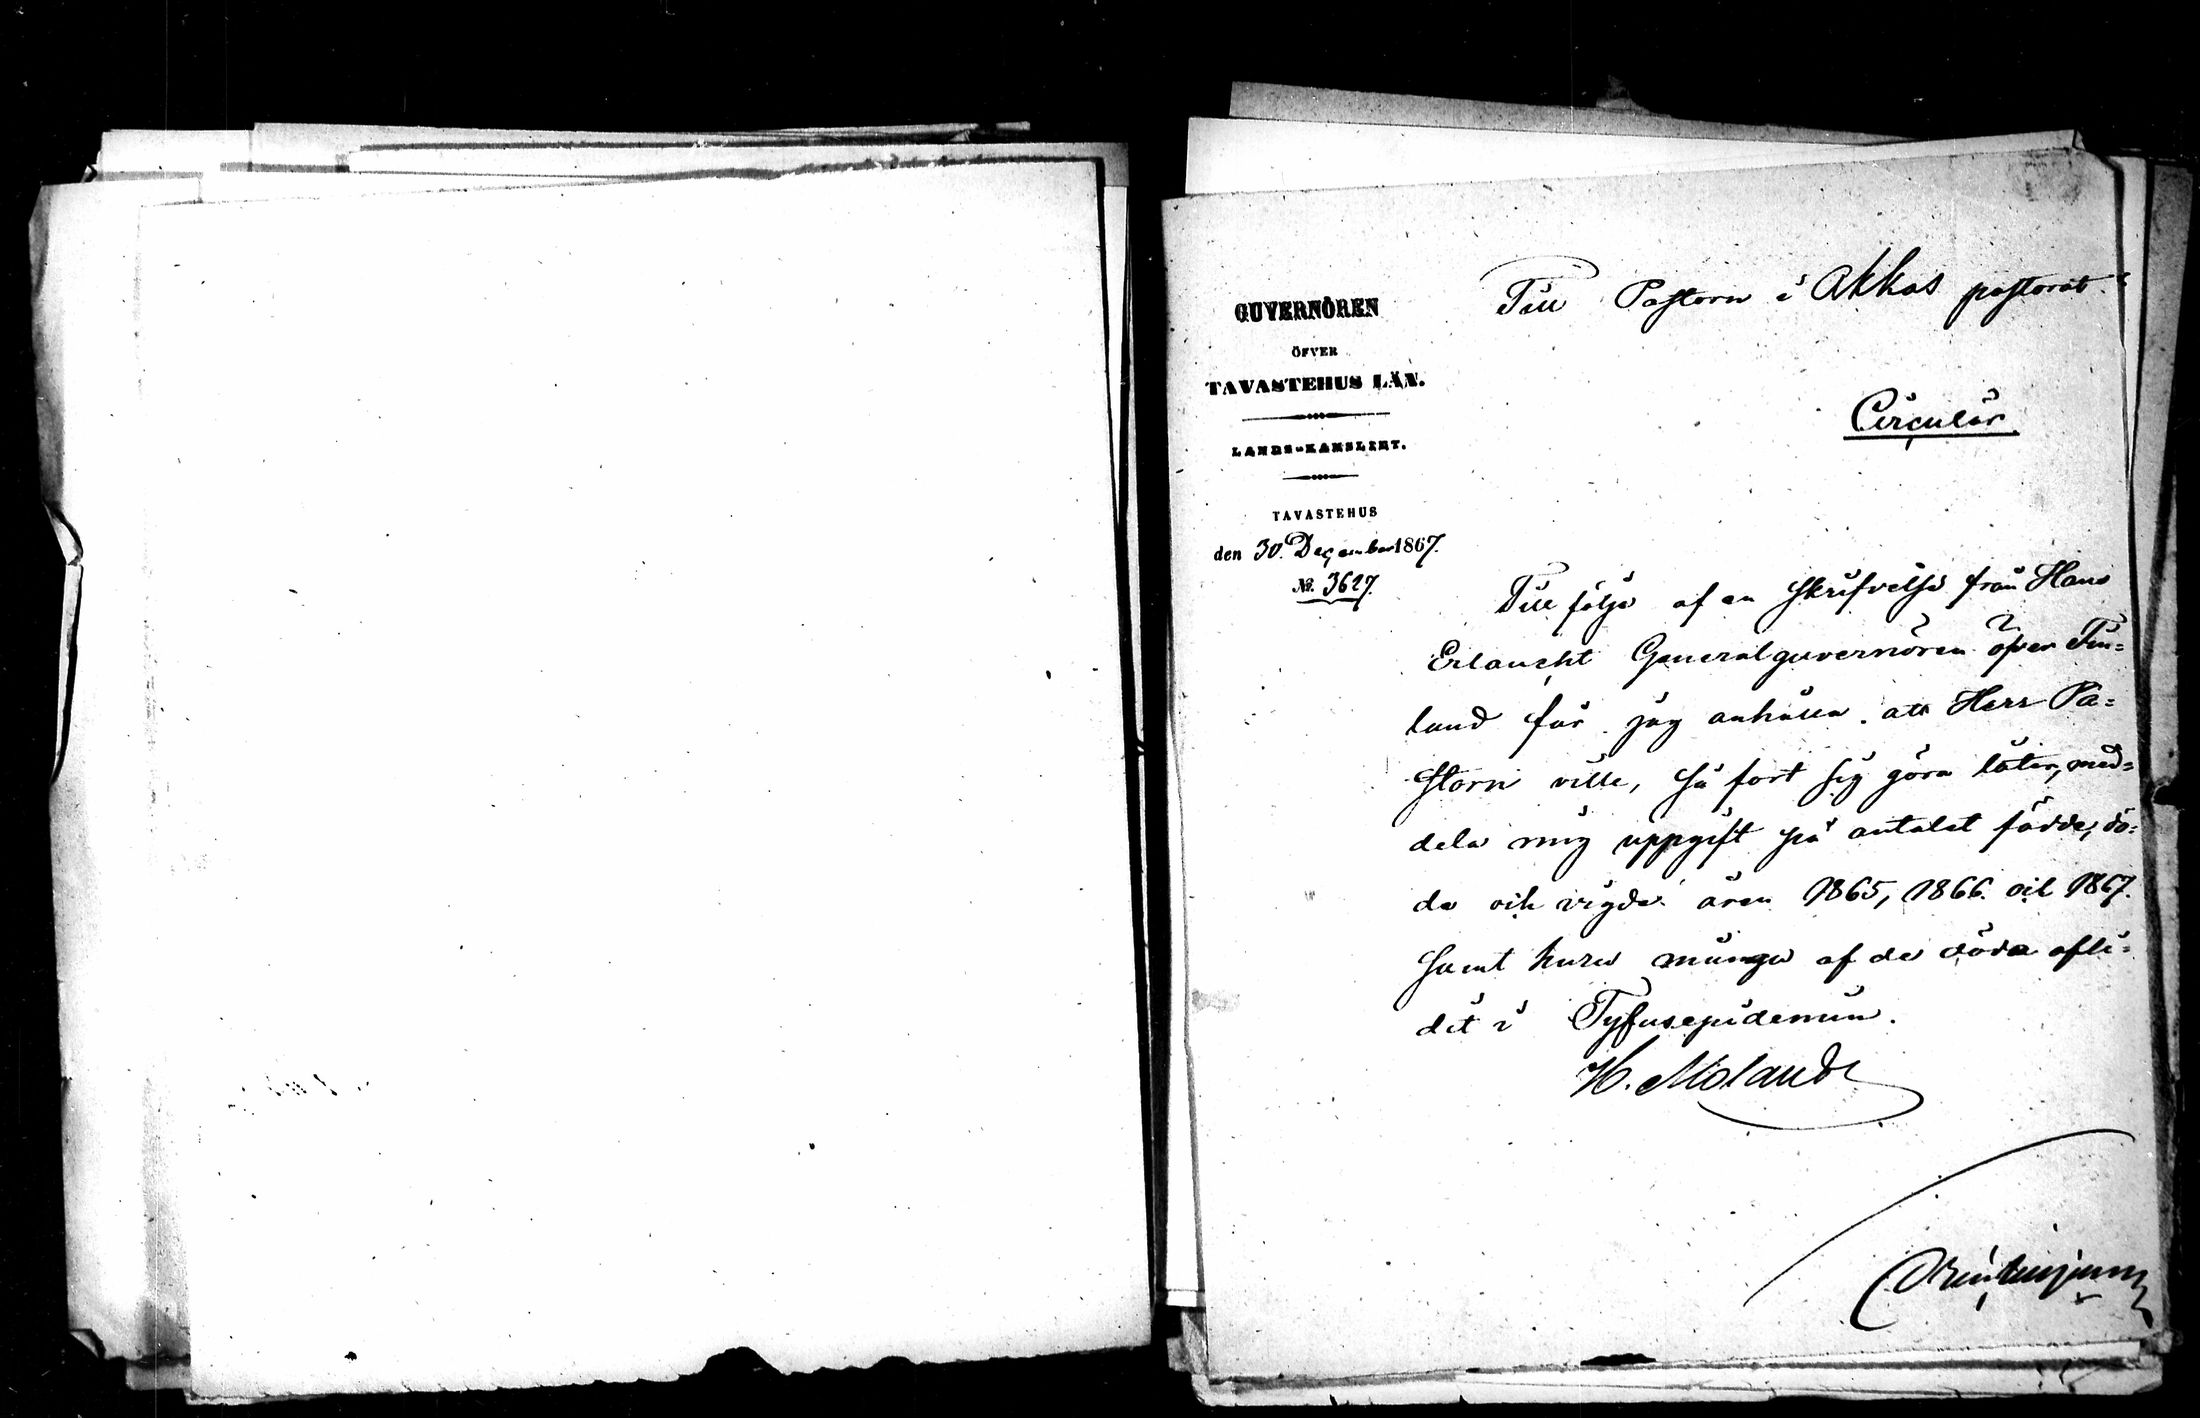 GUVERNÖREN
ÖFVER
TAVASTEHUS LÄN.
LANDS-KANSLIET.
TAVASTEHUS
den 30. December 1867.
No. 3627.
Till Pastorn i Akkas pastorat.
Circulär.
Till följe af en skrifvelse från Hans
Erlaucht Generalguvernören öfver Fin=
land får jag anhålla att Herr Pa=
storn ville, så fort sig göra låter, med=
dela mig uppgift på antalet födde, dö=
da och vigde åren 1865, 1866 och 1867.
samt huru många af de döda afli=
dit i Tyfusepidemin.
H. Molander